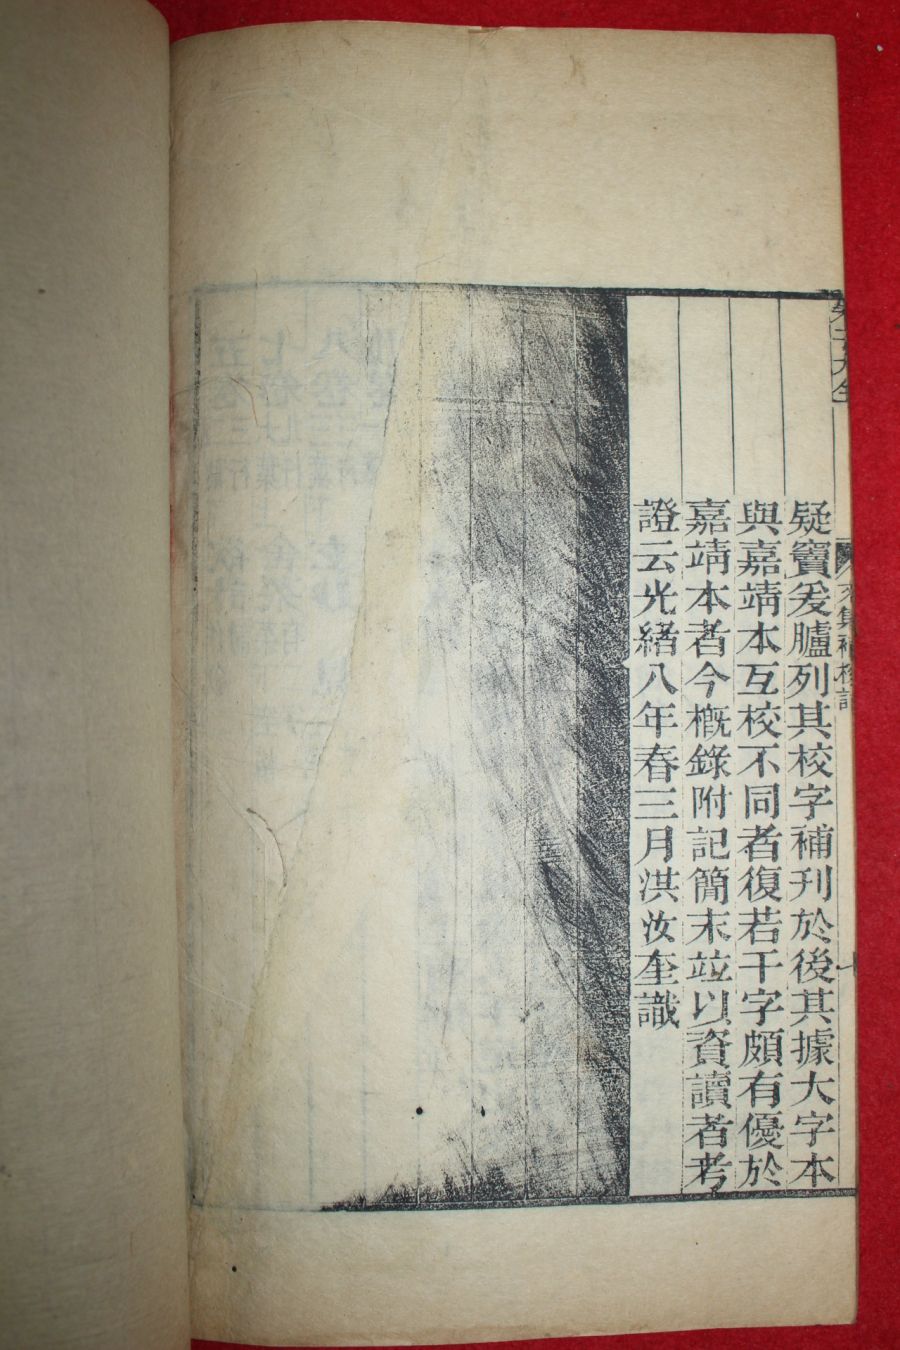 疑竇爰臚列其校字補刊於後其據大字本
與嘉靖本互校不同者復若干字頗有優於
嘉靖本者今概錄附記簡末竝以資讀者考
證云光緒八年春三月洪汝奎識